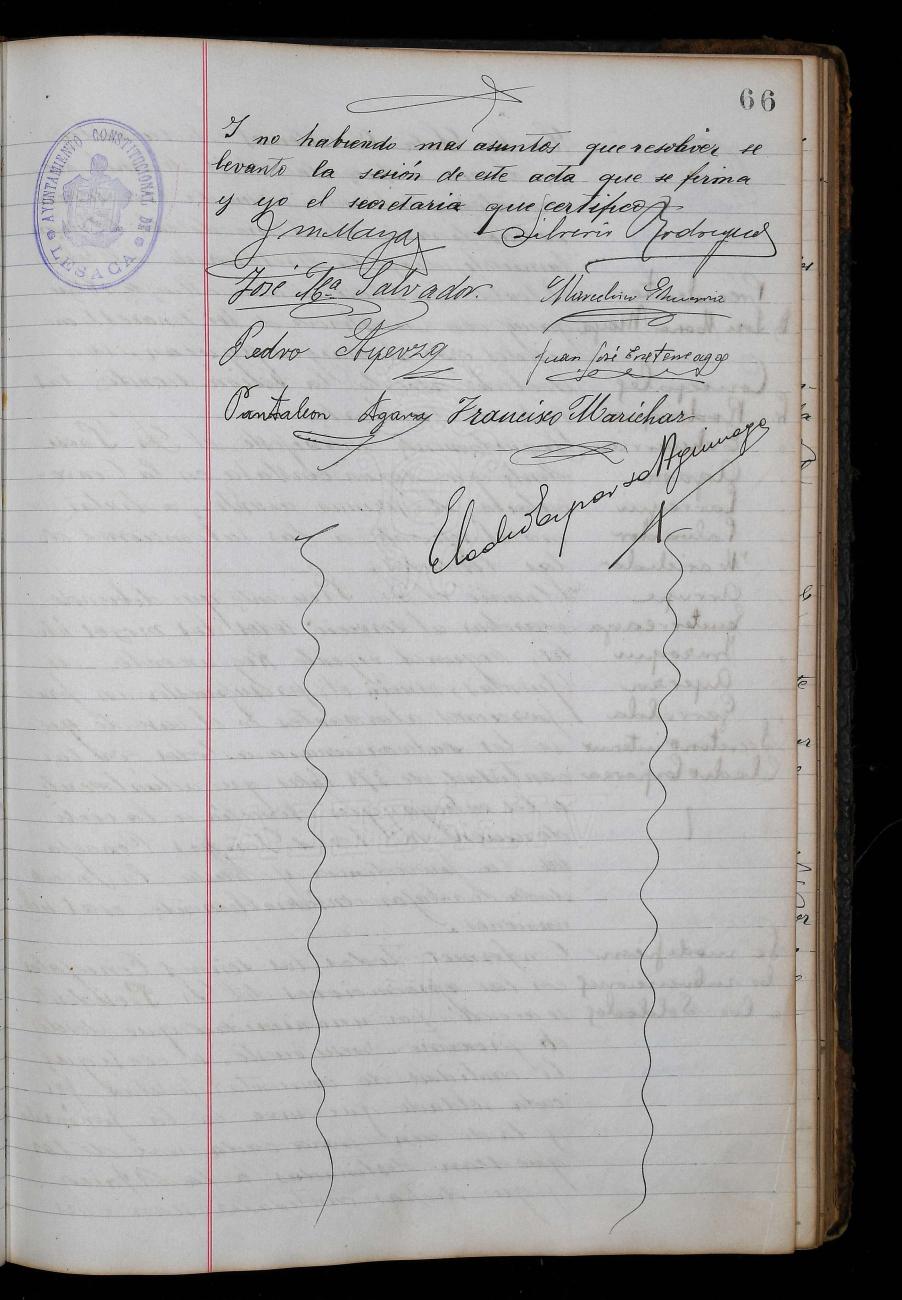 66
AYUNTAMIENTO CONSTITUCIONAL DE
LESACA
Y no habiendo mas asuntos que resolver se
levanto la sesión de este acta que se firma
y yo el secretario que certifico
J M Maya Silverio Rodriguez
José Mª Salvador. Marcelino Echeverria
Pedro
Juan José Enetereaga
Pantaleon Francisco Marichar
Eladio Esparza Aguinaga